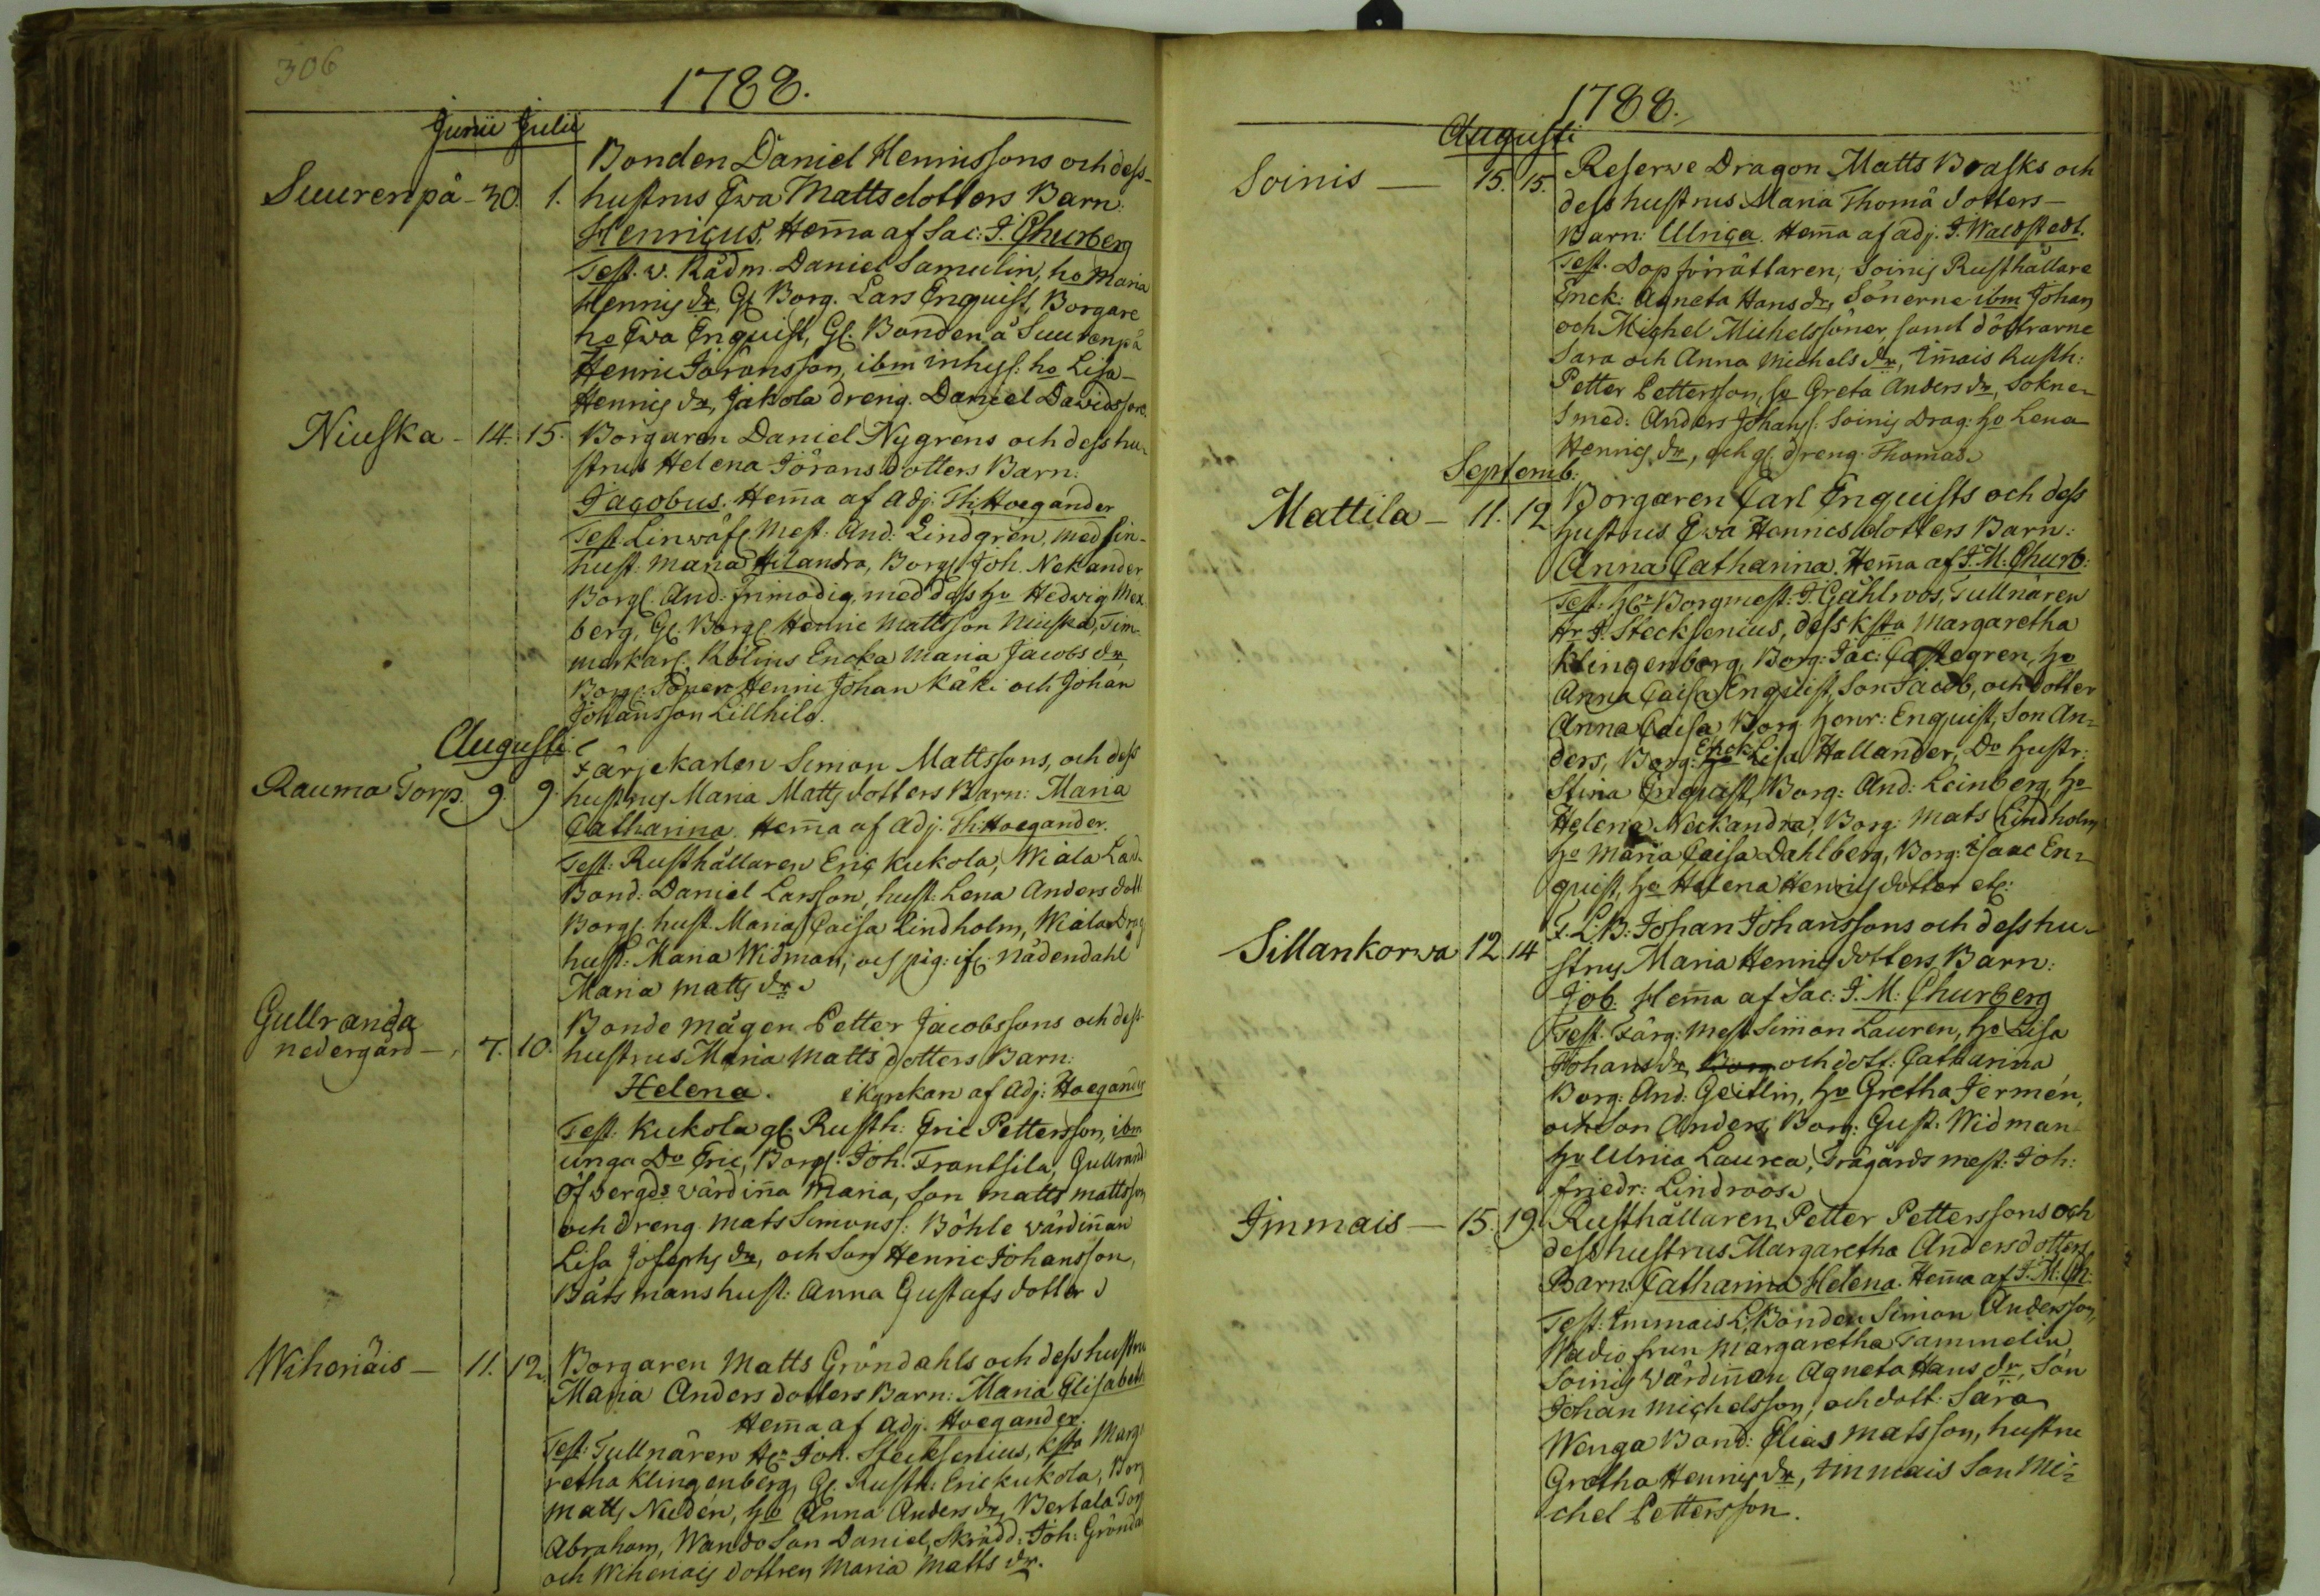 306
1788.
Junii Julii
Bonden Daniel Henrissons och dess
Suurenpä - 30. 1. hustrus Ewa Mattsdotters Barn:
Henricus, Hem̄a af Sac: J. Churberg
Test. v. Rådm. Daniel Samulin, ho Maria
Henrigs dr, Gl. Borg. Lars Enquist, Borgare
ho Ewa Enquist, Gl. Bonden å Suurenpä
Henric Jöransson, ibm inhys: ho Lisa
Henrigs dr, Jakola dreng. Daniel Davidsson.
Niuska - 14. 15. Borgaren Daniel Nygrens och dess hu-
strus Helena Jöransdotters Barn:
Jacobus. Hem̄a af Adj. Th: Hoegander
Test. Linwäf. Mest: And: Lindgren, med sin
hust: Maria Hilandra, Borg. Joh. Nekander
Borg. And: Frimodig, med dess ho Hedvig Mex
berg, Gl. Borg. Henric Mattsson Niuska, Tim-
merkarl. Rölius Encka Maria Jacobs dr,
Borg. Sönen Henric Johan Käki och Johan
Johansson Lillhila.
Augusti
Färjekarlen Simon Mattssons, och dess
Rauma Torp. 9. 9. hustrus Maria Matts dotters Barn: Maria
Catharina. Hem̄a af Adj: Th: Hoegander.
Test: Rusthållaren Eric Kukola, Wiala Land
Bond: Daniel Larsson, hust: Lena Anders dott
Borg. hust. Maria Caisa Lindholm, Wiala Drag
hust: Maria Widman, och pig: if. Nådendahl
Maria Matts dr.
Gullranda
Bonde mågen Petter Jacobssons och dess
nedergård - 7. 10. hustrus Maria Matts dotters Barn:
Helena. i kyrkan af Adj: Hoegander
Test: Kukola gl. Rusth: Eric Pettersson, ibm
unga Do Eric, Borg: Joh. Frantsila, Gullrand
Öfvergds värdin̄a Maria, Son Matts Mattsson
och dreng Mats Simonss: Böhle värdin̄an
Lisa Josephs dr, och Son Henric Johansson,
Båtsmans hust: Anna Gustafs dotter
Wiheriäis - 11. 12. Borgaren Matts Gröndahls och dess hustru
Maria Anders dotters Barn: Maria Elisabeth
Hem̄a af Adj. Hoegander.
Test: Tullnären Hr Joh. Stecksenius, ksta Marga
retha Klingenberg, Gl. Rusth: Eric Kukola, Borg
Matts Nidén, ho Anna Anders dr, Bertala Torp
Abraham, Wando Son Daniel, Skrädd: Joh: Grönda
och Wiheriäis dottren Maria Matts dr.
1788.
Augusti
Soinis - 15. 15. Reserve Dragon Matts Brasks och
dess hustrus Maria Thomä dotters
Barn: Ulrica. Hem̄a af adj. J. Waldstedt.
Test. Dopförrättaren, Soinis Rusthållare
Enck: Agneta Hans dr, Sönerne ibm Johan
och Michel Michelssöner, samt döttrarne
Sara och Anna Michels dr, Im̄ais Rusth:
Petter Pettersson, ho Greta Anders dr, Sokne-
smed: Anders Johanss: Soinis Drag: ho Lena
Henrigs dr, och gl. dreng Thomas.
Septemb:
Mattila - 11. 12. Borgaren Carl Enquists och dess
hustrus Ewa Henricsdotters Barn:
Anna Catharina. Hem̄a af J. M: Churb:
Test: Hr Borgmest: J. Gählroos, Tullnären
Hr J. Stecksenius, dess ksta Margaretha
Klingenberg, Borg: Jac: Castegren, ho
Anna Caisa Enquist, Son Jacob, och dotter
Anna Caisa, Borg. Henr: Enquist, Son An-
ders, Borg: Enck: Lisa Hallander, Do hustr:
Stina Enquist, Borg: And: Leinberg, ho
Helena Neckandra, Borg: Mats Lindholm
ho Maria Caisa Dahlberg, Borg: Isaac En-
quist, ho Helena Henrigs dotter etc:
Sillankorwa 12 14 F. L. B: Johan Johanssons och dess hu-
strus Maria Henrigs dotters Barn:
Job. Hem̄a af Sac: J. M: Churberg
Test. Färg: Mest Simon Lauren, ho Lisa
Johans dr, och dott: Catharina
Borg: And: Geitlin, ho Gretha Jermén,
och Son Anders, Borg: Gust: Widman
ho Ulrica Laurea, Trägårds mest: Joh:
Friedr: Lindroos.
Immais - 15. 19. Rusthållaren Petter Petterssons och
dess hustrus Margaretha Andersdotters
Barn: Catharina Helena. Hem̄a af J. M: Ch.
Test: Immais L. Bonden Simon Andersson,
Wadio frun Margaretha Tammelin
Soinis värdin̄an Agneta Hans dr, Son
Johan Michelsson, och dott: Sara
Wenga Bond: Elias Matsson, hustru
Gretha Henrigs dr, Immais Son Mi-
chel Pettersson.